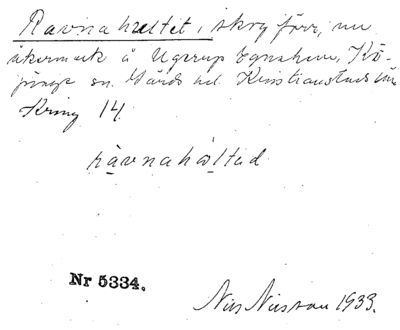 Ravnahæltet, skog förr, nu
åkermark å Ugerup Egnahem, Kö-
pinge sn. Gärds hd. Kristianstads län
Kring 14
rävnahältad
Nr 5334.
Nils Nilsson 1933.